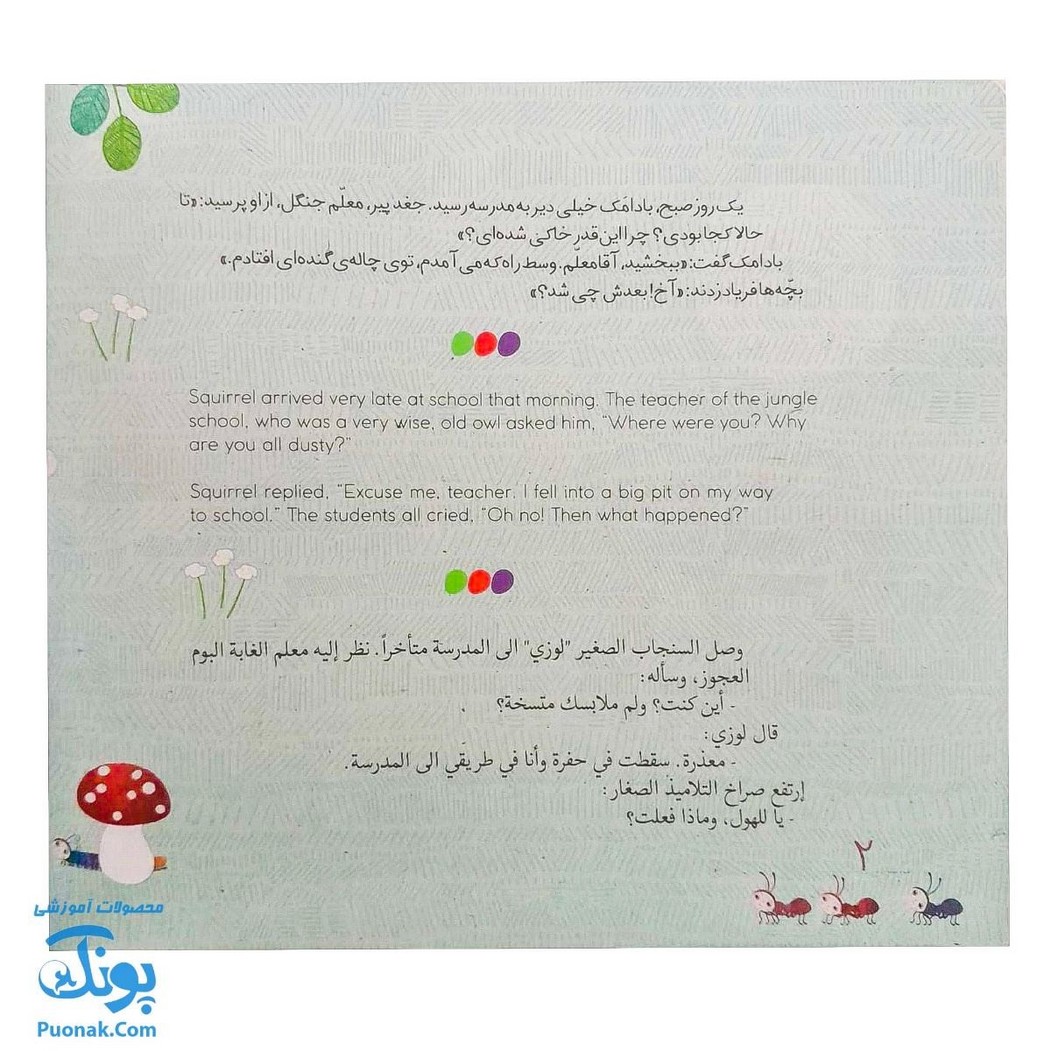 یک روز صبح، بادامَک خیلی دیر به مدرسه رسید. جغد پیر، معلّم جنگل، از او پرسید: «تا
حالا کجا بودی؟ چرا این قدر خاکی شده‌ای؟»
بادامک گفت: «ببخشید، آقا معلّم. وسط راه که می‌آمدم، توی چاله‌ی گُنده‌ای افتادم.»
بچّه‌ها فریاد زدند: «آخ! بعدش چی شد؟»
Squirrel arrived very late at school that morning. The teacher of the jungle
school, who was a very wise, old owl asked him, "Where were you? Why
are you all dusty?"
Squirrel replied, "Excuse me, teacher. I fell into a big pit on my way
to school." The students all cried, "Oh no! Then what happened?"
وصل السنجاب الصغير "لوزي" الى المدرسة متأخراً. نظر إليه معلم الغابة البوم
العجوز، وسأله:
- أين كنت؟ ولم ملابسك متسخة؟
قال لوزي:
- معذرة. سقطت في حفرة وأنا في طريقي الى المدرسة.
إرتفع صراخ التلاميذ الصغار:
- يا للهول، وماذا فعلت؟
۲
محصولات آموزشی
پونک
Puonak.Com